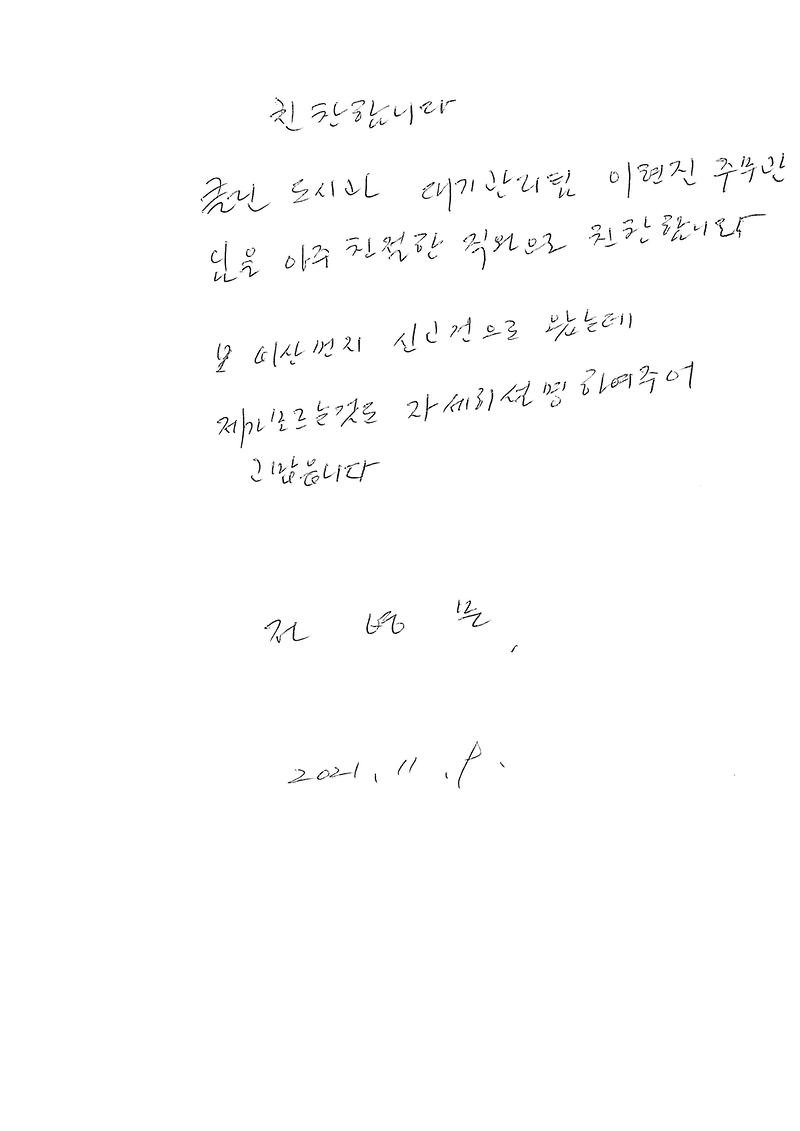 친찬합니다
클린 도시과 대기관리팀 이현진 주무관
님을 아주 친절한 직원으로 친찬합니다
비산먼지 신고건으로 왔는데
제가모르는것도 자세히설명하여주어
고맙습니다
전 병 문
2021. 11. 9.